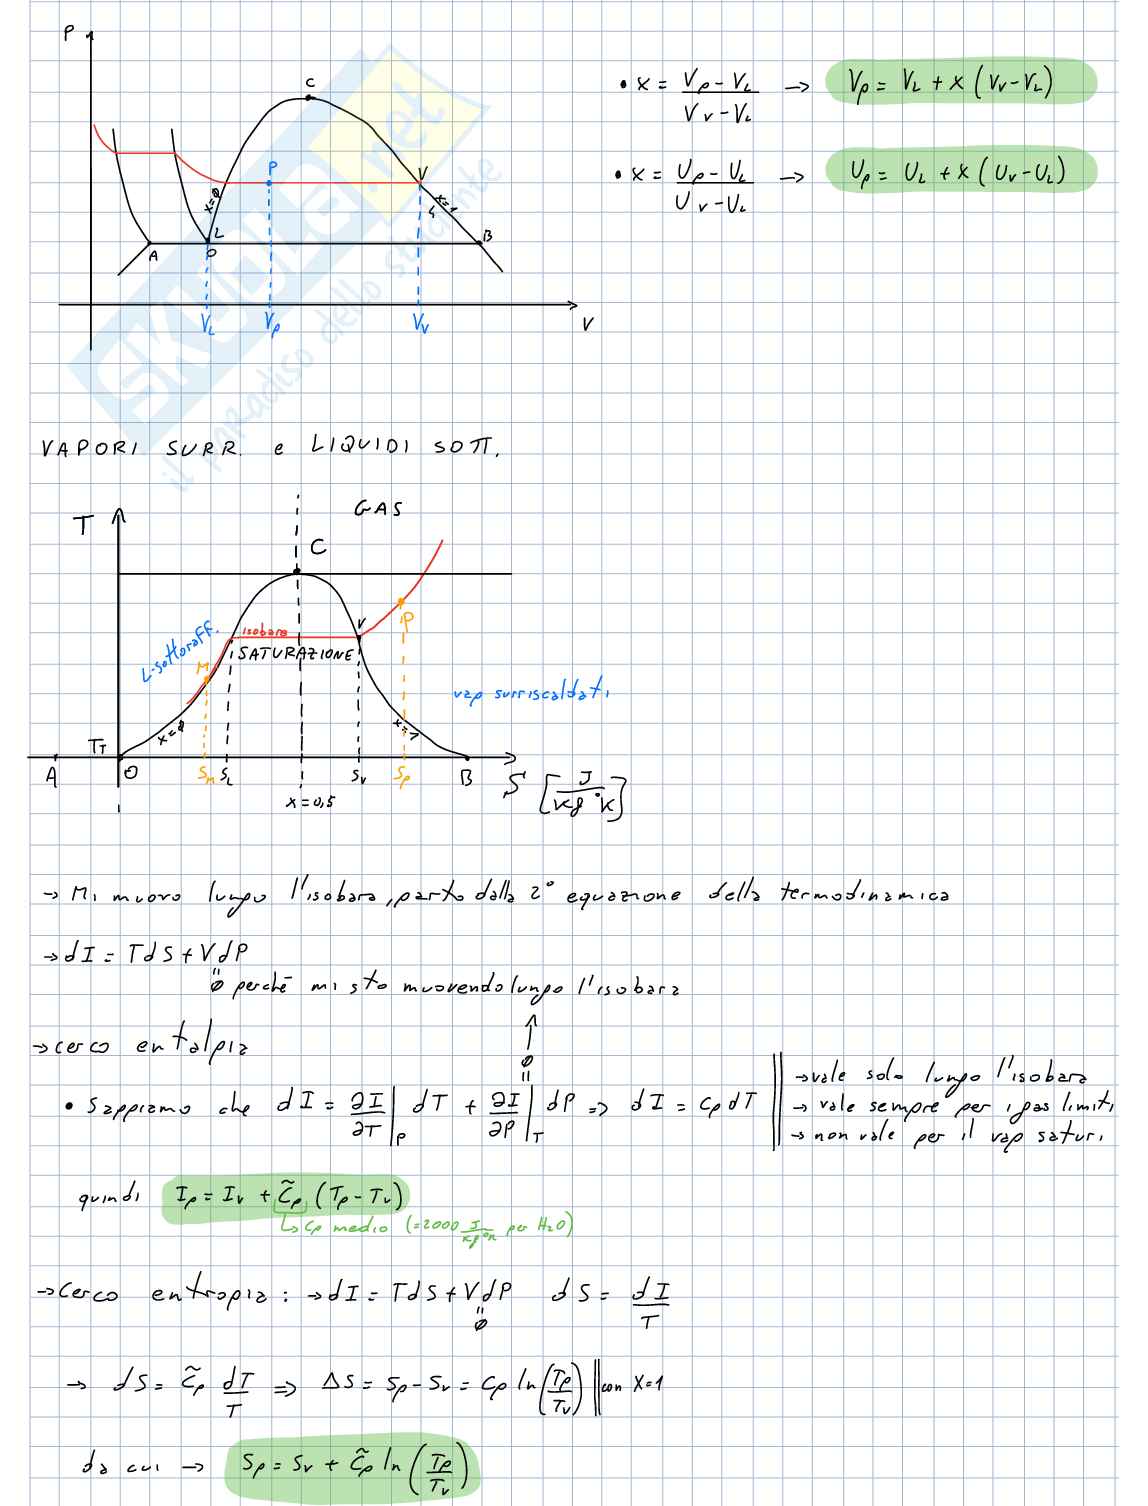 P
C
P
V
x=0
x=1
L
A
O
B
V_L
V_P
V_V
V
• x = (V_P - V_L)/(V_V - V_L) → V_P = V_L + x (V_V - V_L)
• x = (U_P - U_L)/(U_V - U_L) → U_P = U_L + x (U_V - U_L)
SKUOLA.net
il paradiso dello studente
VAPORI SURR. e LIQUIDI SOTT.
GAS
T
C
isobara
V
P
L-sottoraff.
M
SATURAZIONE
vap surriscaldati
x=0
x=1
T_T
A
O
S_M
S_L
S_V
S_P
B
S [J/kg°K]
x=0,5
→ Mi muovo lungo l'isobara, parto dalla 2° equazione della termodinamica
→ dI = TdS + VdP
" 0 perchè mi sto muovendo lungo l'isobara
→ cerco entalpia
• Sappiamo che dI = ∂I/∂T|_P dT + ∂I/∂P|_T dP ⇒ dI = c_P dT
0
"
→ vale solo lungo l'isobara
→ vale sempre per i gas limiti
→ non vale per il vap saturi
quindi I_P = I_V + c̃_P (T_P - T_V)
↳ c_P medio (=2000 J/kg°K per H2O)
→ Cerco entropia: → dI = TdS + VdP dS = dI/T
"
0
→ dS = c̃_P dT/T ⇒ ΔS = S_P - S_V = c_P ln(T_P/T_V) || con X=1
da cui → S_P = S_V + c̃_P ln(T_P/T_V)